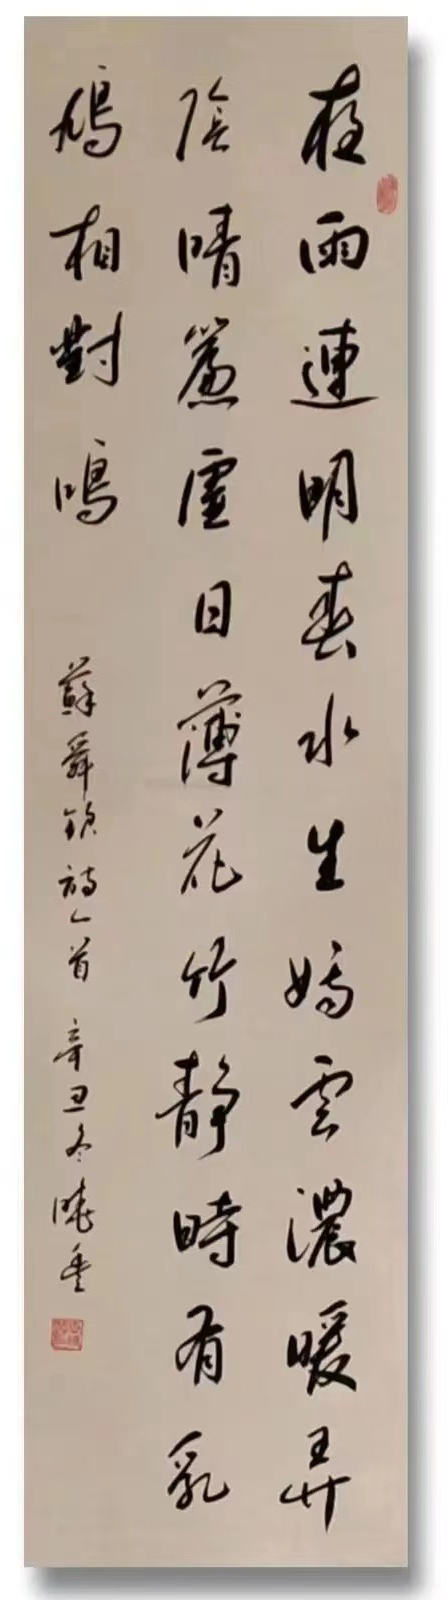 夜雨連明春水生嬌雲濃暖弄
陰晴簾虛日薄花竹靜時有乳
鳩相對鳴
蘇舜欽詩一首 辛丑冬 曉